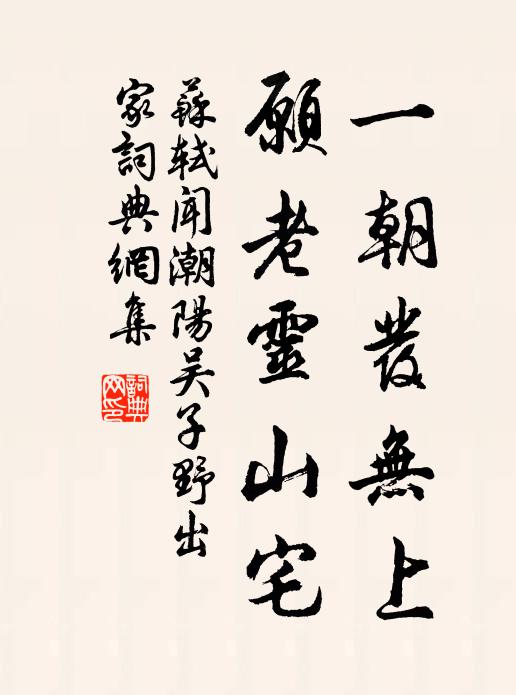 一朝發無上
願老靈山宅
蘇軾聞潮陽吴子野出
家詞典網集
詞典
网印